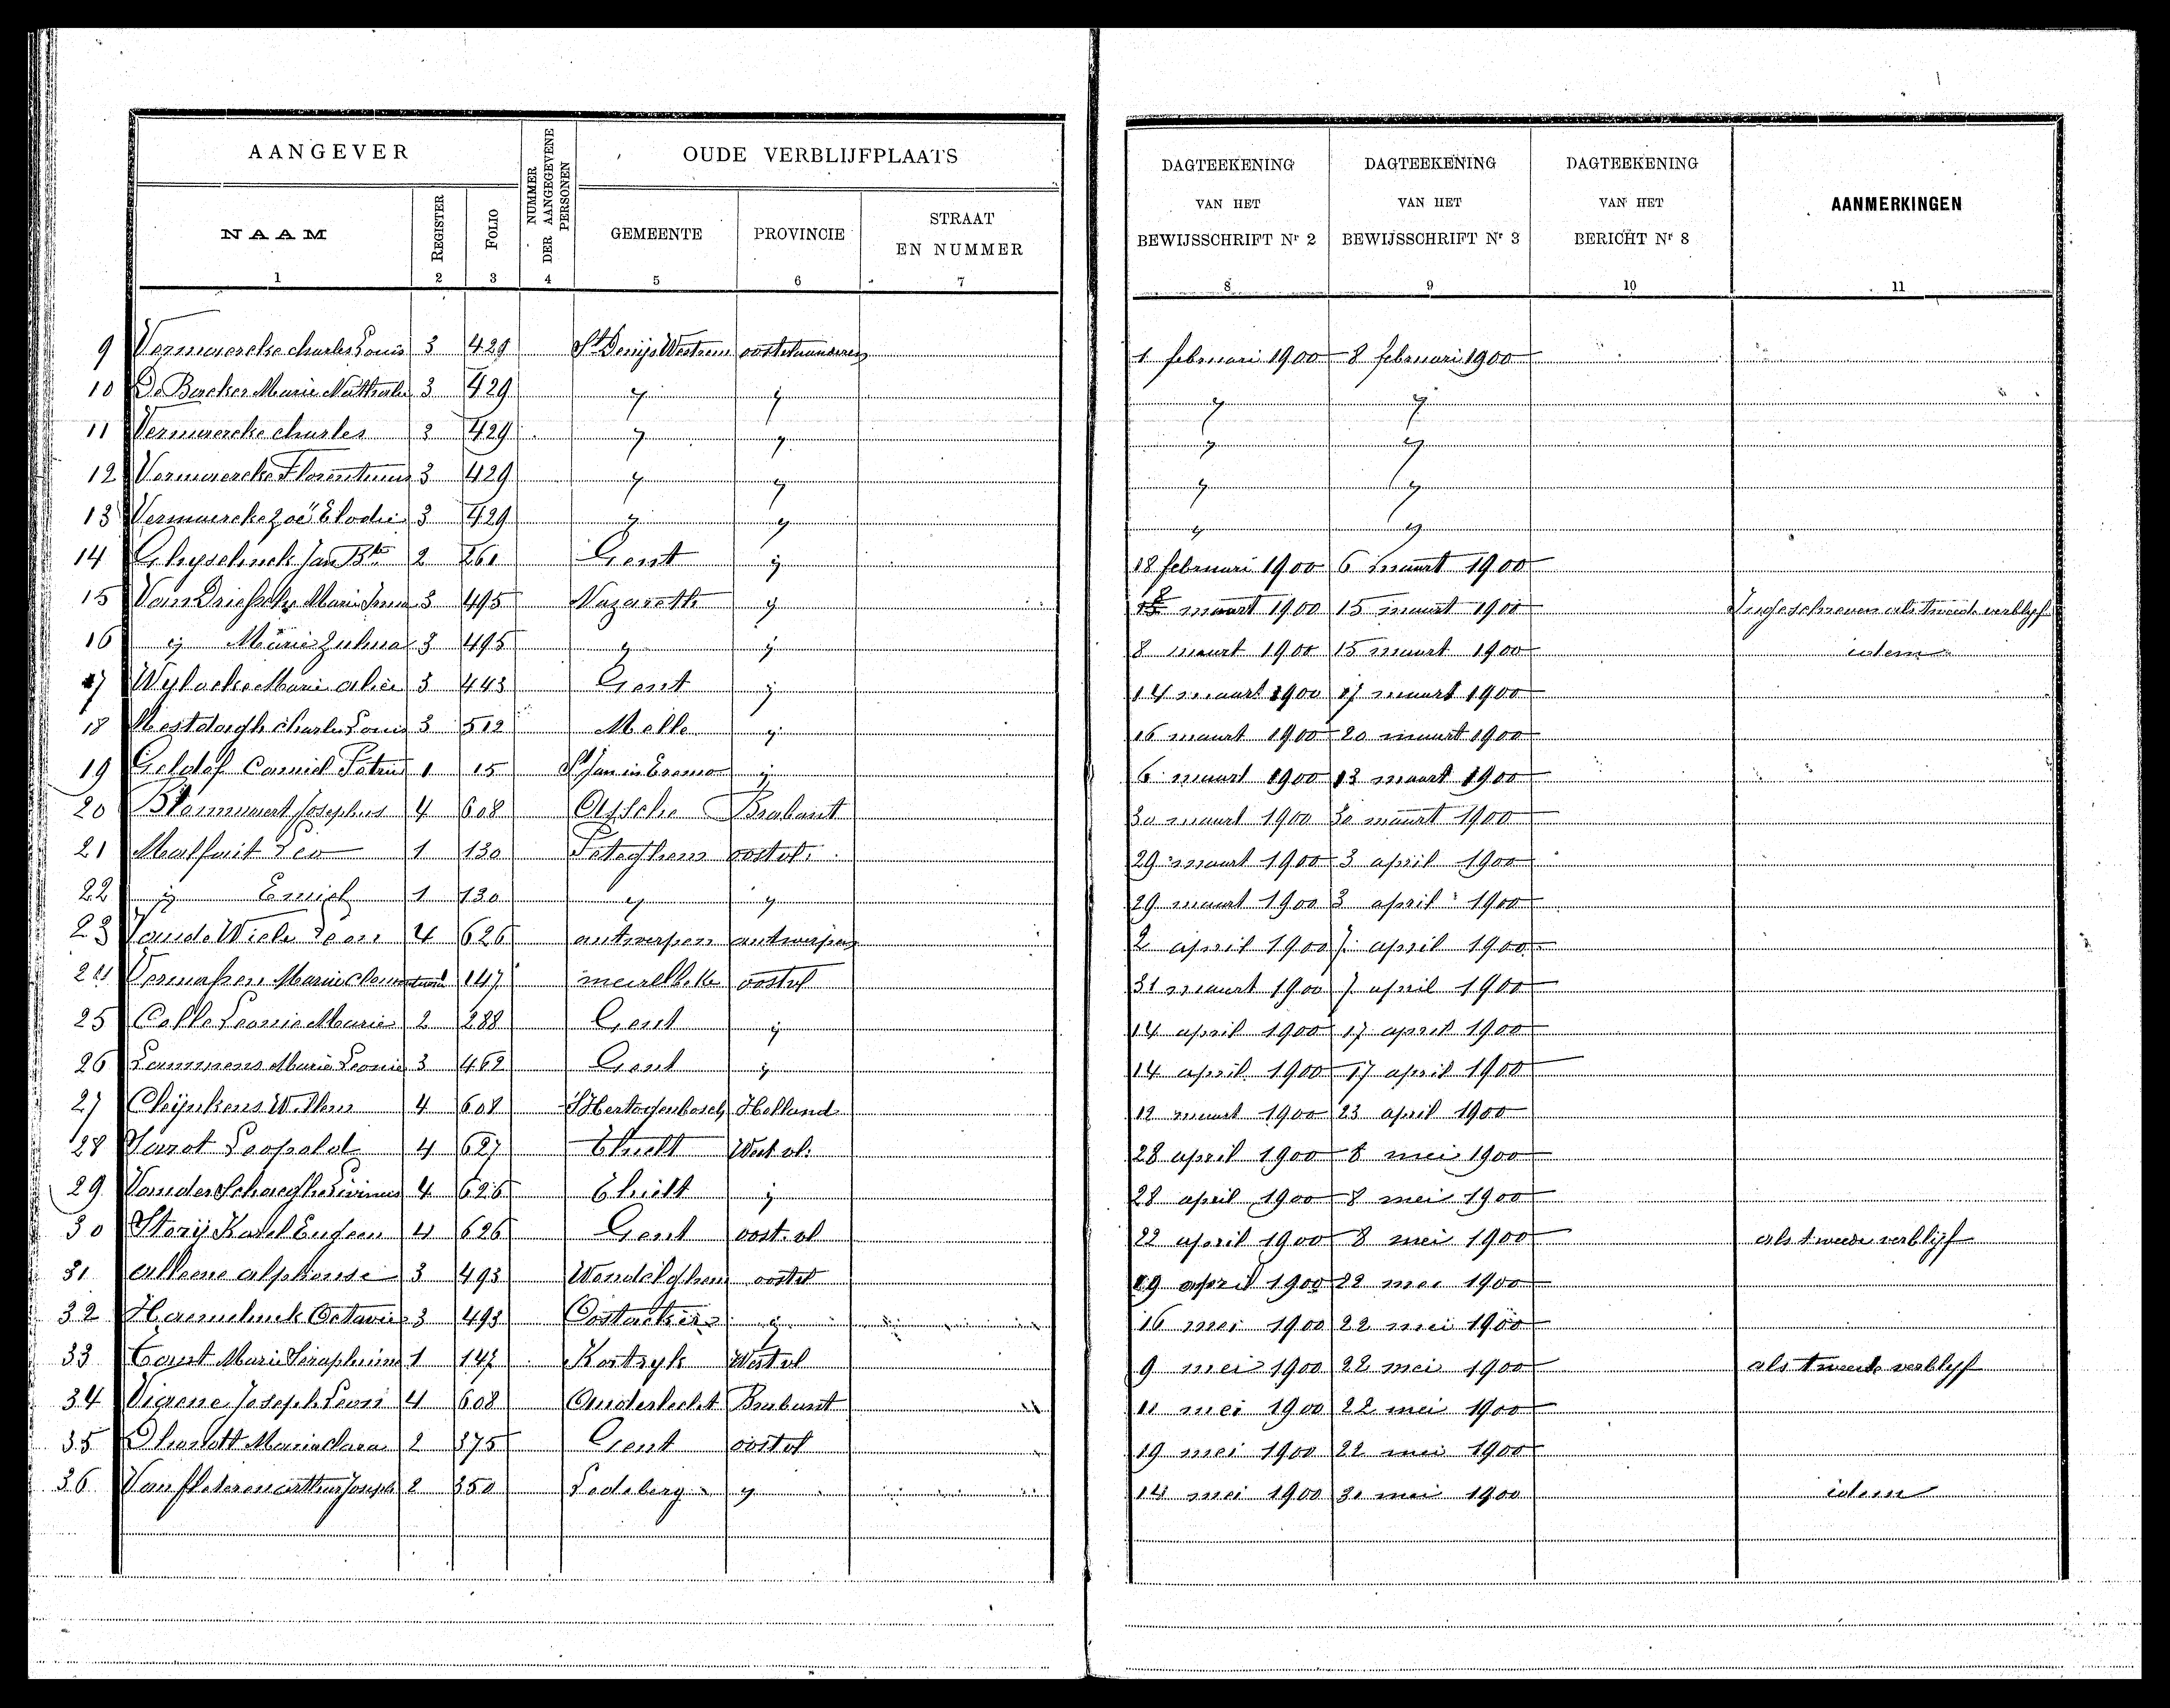 AANGEVER
NUMMER DER AANGEGEVENE PERSONEN
OUDE VERBLIJFPLAATS
DAGTEEKENING VAN HET BEWIJSSCHRIFT Nr 2
DAGTEEKENING VAN HET BEWIJSSCHRIFT Nr 3
DAGTEEKENING VAN HET BERICHT Nr 8
AANMERKINGEN
NAAM
REGISTER
FOLIO
GEMEENTE
PROVINCIE
STRAAT EN NUMMER
1 2 3 4 5 6 7 8 9 10 11
9 Vermaercke charles Louis 3 429 St Denijs Westrem oostvlaanderen 1 februari 1900 8 februari 1900
10 De Backer Marie Nathalie 3 429 y y y y
11 Vermaercke charles 3 429 y y y y
12 Vermaercke 3 429 y y y y
13 Vermaercke Zoë Elodie 3 429 y y y y
14 Jan Bte 2 261 Gent ij 18 februari 1900 6 maart 1900
15 Van Driessche Marie 3 495 Nazareth y 8 maart 1900 15 maart 1900 Ingeschreven als tweede verblijf
16 ij Marie Zulma 3 495 y ij 8 maart 1900 15 maart 1900 idem
17 Wylacke Marie alice 3 443 Gent ij 14 maart 1900 17 maart 1900
18 Mestdagh Charles Louis 3 512 Melle y 16 maart 1900 20 maart 1900
19 Geldof Camiel Petrus 1 15 St Jan in Eremo ij 6 maart 1900 13 maart 1900
20 Blommaert Josephus 4 608 Assche Brabant 30 maart 1900 30 maart 1900
21 Malfait Leo 1 130 Peteghem oostvl. 29 maart 1900 3 april 1900
22 ij Emiel 1 130 y y 29 maart 1900 3 april 1900
23 Van de Wiele Leon 4 626 antwerpen antwerpen 2 april 1900 7 april 1900
24 Marie 147 meirelbeke oostvl 31 maart 1900 7 april 1900
25 Calle Leonie Marie 2 288 Gent ij 14 april 1900 17 april 1900
26 Lammens Marie Leonie 3 462 Gent ij 14 april 1900 17 april 1900
27 Willem 4 608 S'Hertogenbosch Holland 12 maart 1900 23 april 1900
28 Leopold 4 627 Thielt West vl. 28 april 1900 8 mei 1900
29 Van der Schaeghe Livinus 4 626 Thielt ij 28 april 1900 8 mei 1900
30 Storij Karel Eugeen 4 626 Gent oost. vl 22 april 1900 8 mei 1900 als tweede verblijf
31 alleene alphonse 3 493 oostvl 19 april 1900 22 mei 1900
32 Haemelinck Octavie 3 493 Oostacker y 16 mei 1900 22 mei 1900
33 Marie Seraphine 1 147 Kortryk West vl 9 mei 1900 22 mei 1900 als tweede verblijf
34 Vierene Joseph Leon 4 608 Anderlecht Brabant 11 mei 1900 22 mei 1900
35 Dhondt Maria Clara 2 375 Gent oostvl 19 mei 1900 22 mei 1900
36 Van Peteren arthur Joseph 2 350 Ledeberg y 14 mei 1900 30 mei 1900 idem